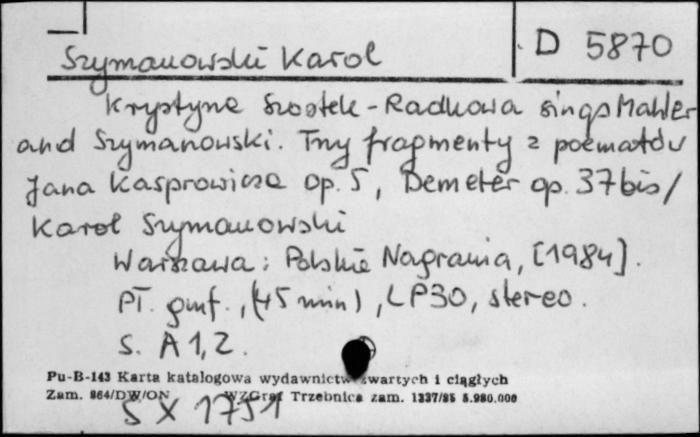 Szymanowski Karol
D 5870
Krystyna Szostek-Radkowa sings Mahler
and Szymanowski. Trzy fragmenty z poematów
Jana Kasprowicza op. 5, Demeter op. 37bis/
Karol Szymanowski
Warszawa: Polskie Nagrania, [1984].
Pł. gmf., (45 min), LP30, stereo.
S. A 1, 2.
Pu-B-143 Karta katalogowa wydawnictw zwartych i ciągłych
Zam. 864/DW/ON WZGraf Trzebnica zam. 1337/85 5.980.000
SX 1751